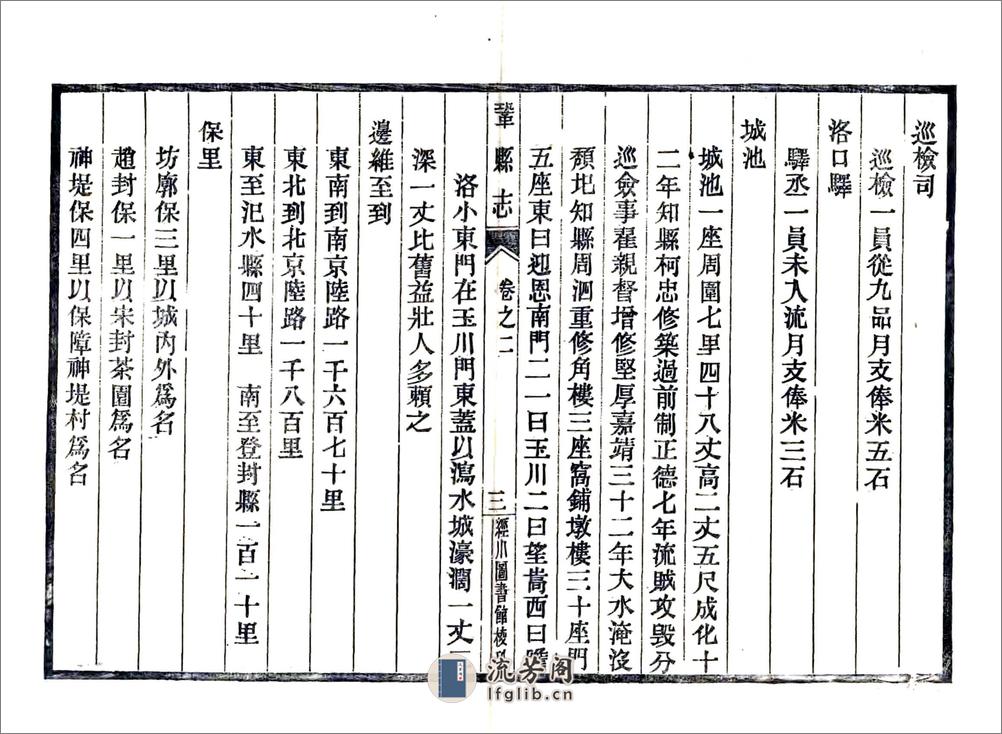 巡檢司
巡檢一員從九品月支俸米五石
洛口驛
驛丞一員未入流月支俸米三石
城池
城池一座周圍七里四十八丈高二丈五尺成化十
二年知縣柯忠修築過前制正德七年流賊攻毀分
巡僉事翟親督增修堅厚嘉靖三十二年大水淹沒
頹圮知縣周泗重修角樓三座窩鋪墩樓三十座門
五座東曰迎恩南門二一曰玉川二曰望嵩西曰瞻
鞏縣志
卷之二
三
經川圖書館校
洛小東門在玉川門東蓋以瀉水城濠濶一丈
深一丈比舊益壯人多賴之
邊維至到
東南到南京陸路一千六百七十里
東北到北京陸路一千八百里
東至汜水縣四十里 南至登封縣一百一十里
保里
坊廓保三里以城內外爲名
趙封保一里以宋封茶園爲名
神堤保四里以保障神堤村爲名
流芳阁
lfglib.cn